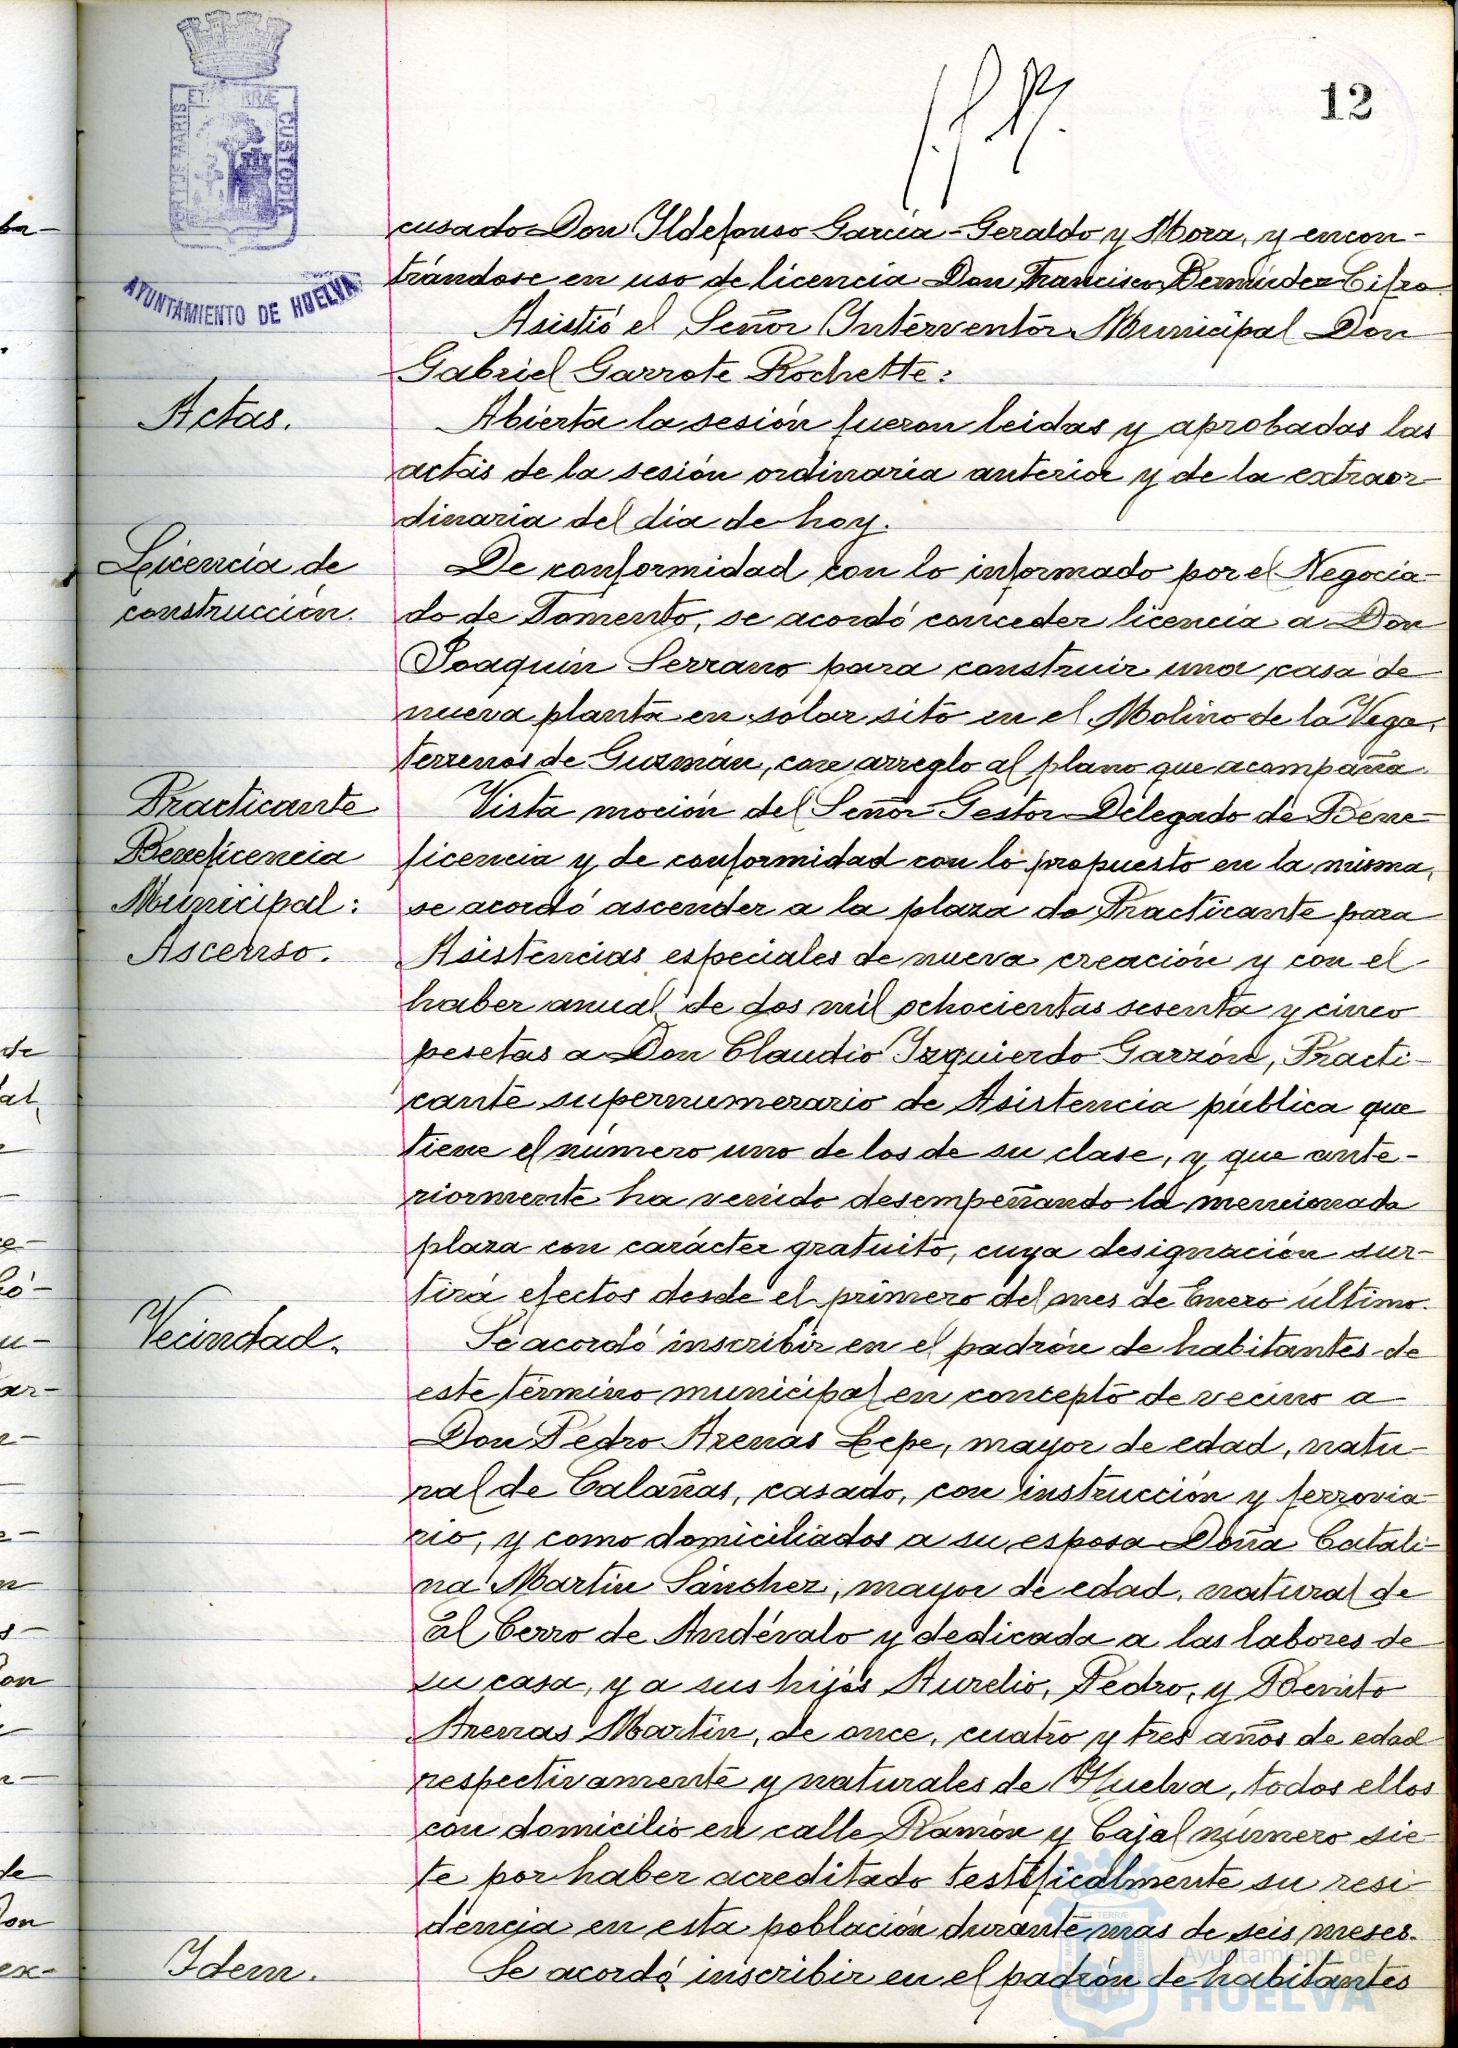 12
PORTUS MARIS ET TERRÆ CUSTODIA
AYUNTAMIENTO DE HUELVA
cusado Don Ildefonso García-Geraldo y Mora, y encon-
trándose en uso de licencia Don Francisco Bermúdez Cifra
Asistió el Señor Interventor Municipal Don
Gabriel Garrote Rochette:
Actas.
Abierta la sesión fueron leidas y aprobadas las
actas de la sesión ordinaria anterior y de la extraor-
dinaria del dia de hoy.
Licencia de
construcción.
De conformidad con lo informado por el Negocia-
do de Fomento, se acordó conceder licencia a Don
Joaquín Serrano para construir una casa de
nueva planta en solar sito en el Molino de la Vega,
terrenos de Guzmán, con arreglo al plano que acompaña.
Practicante
Beneficencia
Municipal:
Ascenso.
Vista moción del Señor Gestor Delegado de Bene-
ficencia y de conformidad con lo propuesto en la misma,
se acordó ascender a la plaza de Practicante para
Asistencias especiales de nueva creación y con el
haber anual de dos mil ochocientas sesenta y cinco
pesetas a Don Claudio Izquierdo Garzón, Practi-
cante supernumerario de Asistencia pública que
tiene el número uno de los de su clase, y que ante-
riormente ha venido desempeñando la mencionada
plaza con carácter gratuito, cuya designación sur-
tirá efectos desde el primero del mes de Enero último.
Vecindad.
Se acordó inscribir en el padrón de habitantes de
este término municipal en concepto de vecino a
Don Pedro Arenas Lepe, mayor de edad, natu-
ral de Calañas, casado, con instrucción y ferrovia-
rio, y como domiciliados a su esposa Doña Catali-
na Martin Sánchez, mayor de edad, natural de
al Cerro de Andévalo y dedicada a las labores de
su casa, y a sus hijos Aurelio, Pedro, y Benito
Arenas Martín, de once, cuatro y tres años de edad
respectivamente y naturales de Huelva, todos ellos
con domicilio en calle Ramón y Cajal número sie-
te por haber acreditado testificalmente su resi-
dencia en esta población durante mas de seis meses.
Idem.
Se acordó inscribir en el padrón de habitantes
Ayuntamiento de
HUELVA